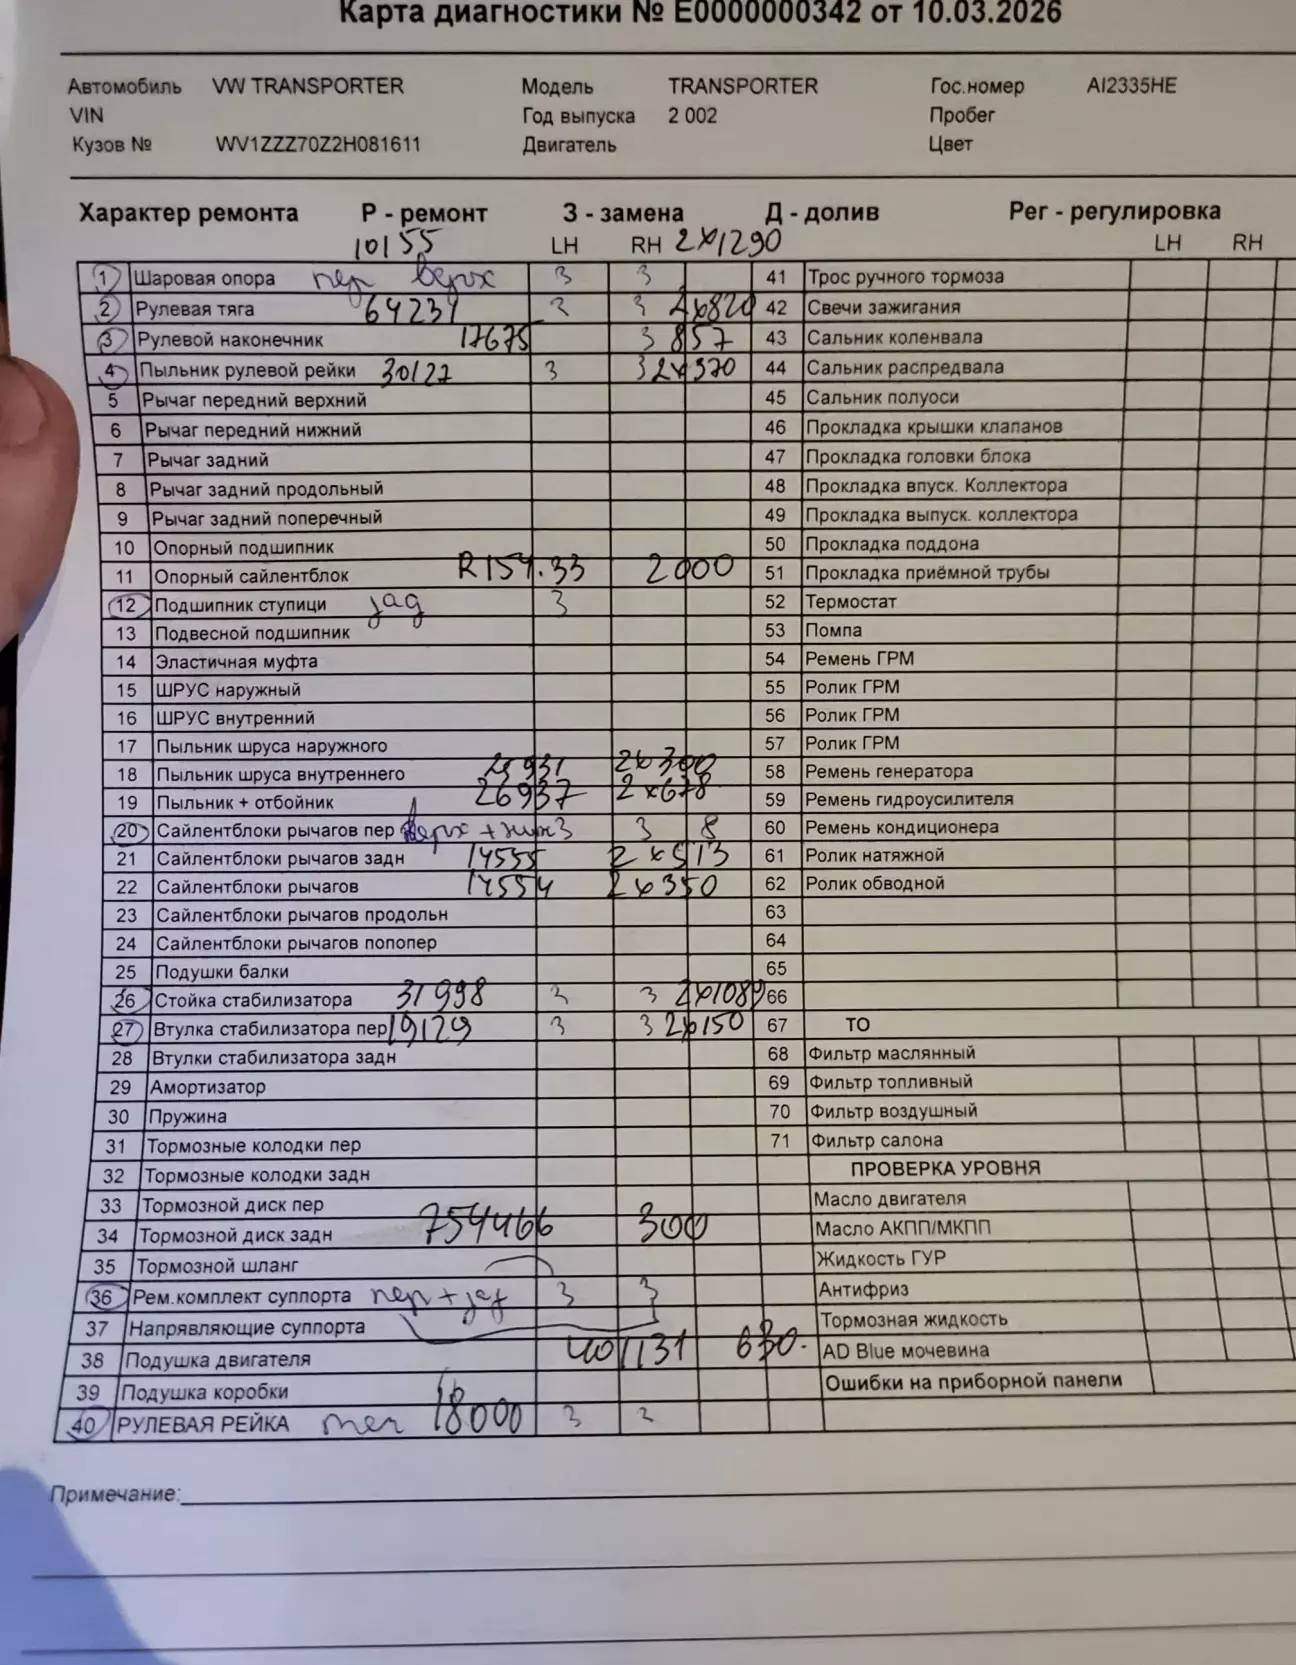 Карта диагностики № Е0000000342 от 10.03.2026
Автомобиль VW TRANSPORTER Модель TRANSPORTER Гос.номер AI2335HE
VIN Год выпуска 2 002 Пробег
Кузов № WV1ZZZ70Z2H081611 Двигатель Цвет
Характер ремонта Р - ремонт З - замена Д - долив Рег - регулировка
10155 LH RH 2x1290 LH RH
1 Шаровая опора пер верх З З 41 Трос ручного тормоза
2 Рулевая тяга 64231 З З 2x820 42 Свечи зажигания
3 Рулевой наконечник 17675 З 857 43 Сальник коленвала
4 Пыльник рулевой рейки 30127 З З 2x370 44 Сальник распредвала
5 Рычаг передний верхний 45 Сальник полуоси
6 Рычаг передний нижний 46 Прокладка крышки клапанов
7 Рычаг задний 47 Прокладка головки блока
8 Рычаг задний продольный 48 Прокладка впуск. Коллектора
9 Рычаг задний поперечный 49 Прокладка выпуск. коллектора
10 Опорный подшипник 50 Прокладка поддона
11 Опорный сайлентблок R154.33 2000 51 Прокладка приёмной трубы
12 Подшипник ступици зад З 52 Термостат
13 Подвесной подшипник 53 Помпа
14 Эластичная муфта 54 Ремень ГРМ
15 ШРУС наружный 55 Ролик ГРМ
16 ШРУС внутренний 56 Ролик ГРМ
17 Пыльник шруса наружного 57 Ролик ГРМ
18 Пыльник шруса внутреннего 2x300 58 Ремень генератора
19 Пыльник + отбойник 26937 2x678 59 Ремень гидроусилителя
20 Сайлентблоки рычагов пер верх + ниж З З 8 60 Ремень кондиционера
21 Сайлентблоки рычагов задн 14555 2x513 61 Ролик натяжной
22 Сайлентблоки рычагов 14554 2x350 62 Ролик обводной
23 Сайлентблоки рычагов продольн 63
24 Сайлентблоки рычагов попопер 64
25 Подушки балки 65
26 Стойка стабилизатора 31998 З З 2x1089 66
27 Втулка стабилизатора пер 19129 З З 2x150 67 ТО
28 Втулки стабилизатора задн 68 Фильтр маслянный
29 Амортизатор 69 Фильтр топливный
30 Пружина 70 Фильтр воздушный
31 Тормозные колодки пер 71 Фильтр салона
32 Тормозные колодки задн ПРОВЕРКА УРОВНЯ
33 Тормозной диск пер Масло двигателя
34 Тормозной диск задн 754466 300 Масло АКПП/МКПП
35 Тормозной шланг Жидкость ГУР
36 Рем.комплект суппорта пер + зад З З Антифриз
37 Напрявляющие суппорта Тормозная жидкость
38 Подушка двигателя 401131 630. AD Blue мочевина
39 Подушка коробки Ошибки на приборной панели
40 РУЛЕВАЯ РЕЙКА теч 18000 З З
Примечание: